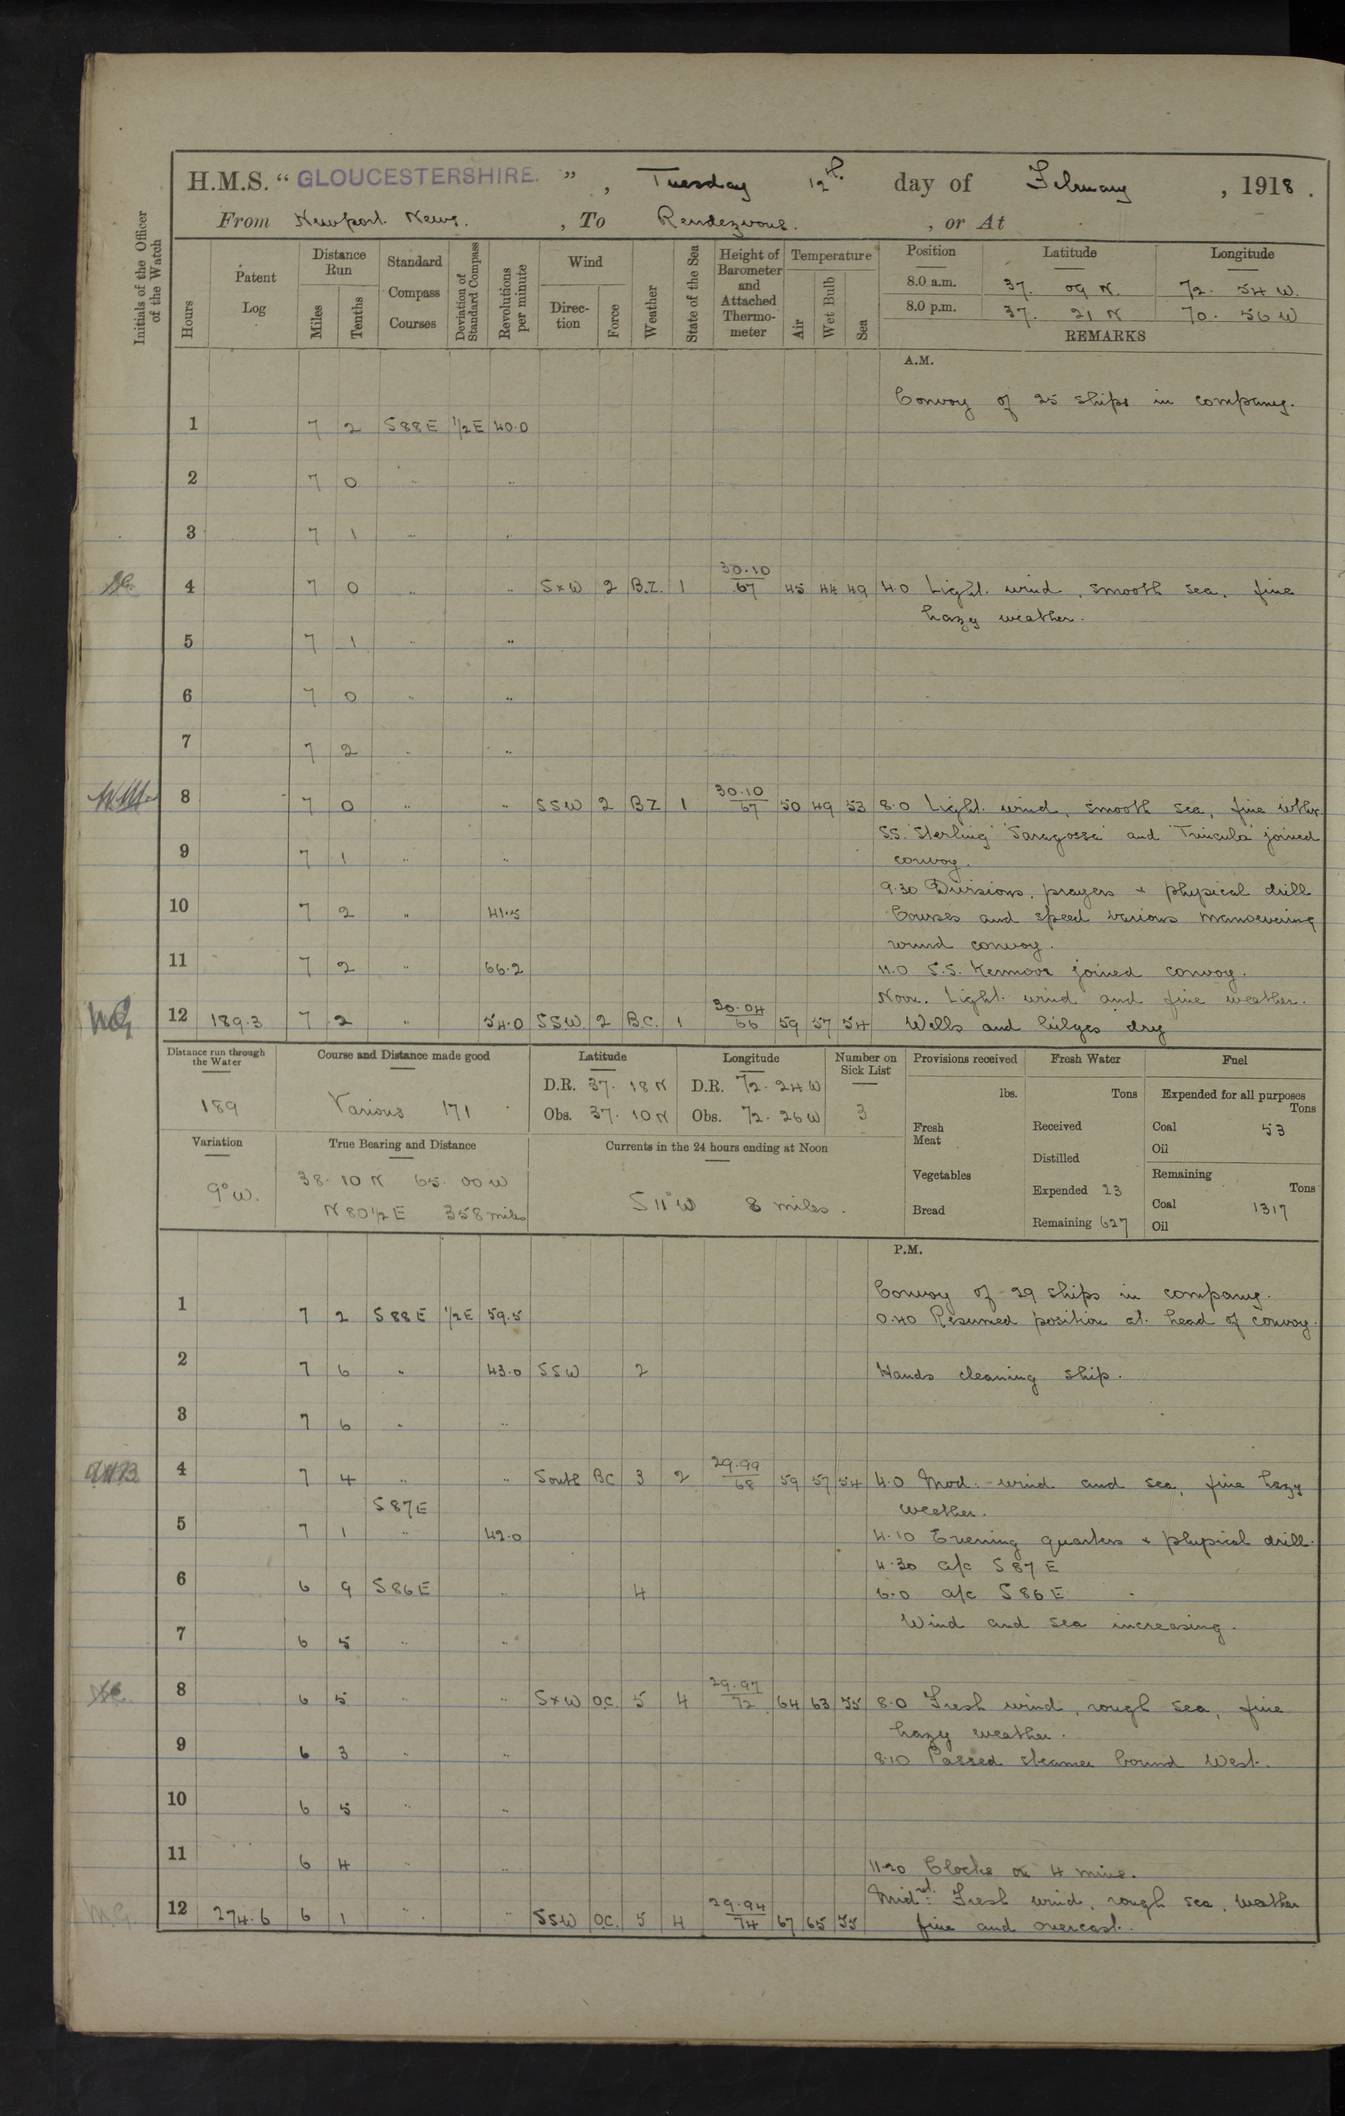 H.M.S. " GLOUCESTERSHIRE. " , Tuesday 12th day of February , 1918 .
From Newport News. , To Rendezvous. , or At
Initials of the Officer of the Watch
Hours
Patent Log
Distance Run
Miles
Tenths
Standard Compass Courses
Deviation of Standard Compass
Revolutions per minute
Wind
Direction
Force
Weather
State of the Sea
Height of Barometer and Attached Thermometer
Temperature
Air
Wet Bulb
Sea
Position Latitude Longitude
8.0 a.m. 37. 09 N. 72. 54 W.
8.0 p.m. 37. 21 N 70. 56 W
REMARKS
A.M.
Convoy of 25 ships in company.
1 7 2 S88E 1/2E 40.0
2 7 0 " "
3 7 1 " "
4 7 0 " " SxW 2 B.Z. 1 30.10/67 45 44 49 4.0 Light wind, smooth sea, fine
hazy weather.
5 7 1 " "
6 7 0 " "
7 7 2 " "
8 7 0 " " SSW 2 BZ 1 30.10/67 50 49 53 8.0 Light wind, smooth sea, fine wthr.
S.S. 'Sterling' 'Saragossa' and 'Trincula' joined
9 7 1 " " convoy.
9.30 Divisions, prayers & physical drill
10 7 2 " 41.5 Courses and speed various manoeuvring
round convoy.
11 7 2 " 66.2 11.0 S.S. Kenmore joined convoy.
Noon. Light wind and fine weather.
12 189.3 7 2 " 54.0 SSW. 2 B.C. 1 30.04/66 59 57 54 Wells and bilges dry
Distance run through the Water
189
Course and Distance made good
Various 171
Latitude
D.R. 37. 18 N
Obs. 37. 10 N
Longitude
D.R. 72. 24 W
Obs. 72. 26 W
Number on Sick List
3
Provisions received
lbs.
Fresh Meat
Vegetables
Bread
Fresh Water
Tons
Received
Distilled
Expended 23
Remaining 627
Fuel
Expended for all purposes
Tons
Coal 53
Oil
Remaining
Tons
Coal 1317
Oil
Variation
9° W.
True Bearing and Distance
38. 10 N 65. 00 W
N 80 1/2 E 358 miles
Currents in the 24 hours ending at Noon
S 11° W 8 miles.
P.M.
Convoy of 29 ships in company.
1 7 2 S88E 1/2E 59.5 0.40 Resumed position at head of convoy.
2 7 6 " 43.0 SSW 2 Hands cleaning ship.
3 7 6 " "
4 7 4 " " South BC 3 2 29.99/68 59 57 54 4.0 Mod. wind and sea, fine hazy
S87E weather.
5 7 1 " 42.0 4.10 Evening quarters & physical drill.
4.30 a/c S 87 E
6 6 9 S86E " 4 6.0 a/c S 86 E
Wind and sea increasing.
7 6 5 " "
8 6 5 " " SxW O.C. 5 4 29.97/72 64 63 55 8.0 Fresh wind, rough sea, fine
hazy weather.
9 6 3 " " 8.10 Passed steamer bound West.
10 6 5 " "
11 6 4 " " 11.20 Clocks on 4 mins.
Midnt. Fresh wind, rough sea, weather
12 274.6 6 1 " " SSW O.C. 5 4 29.94/74 67 65 55 fine and overcast.